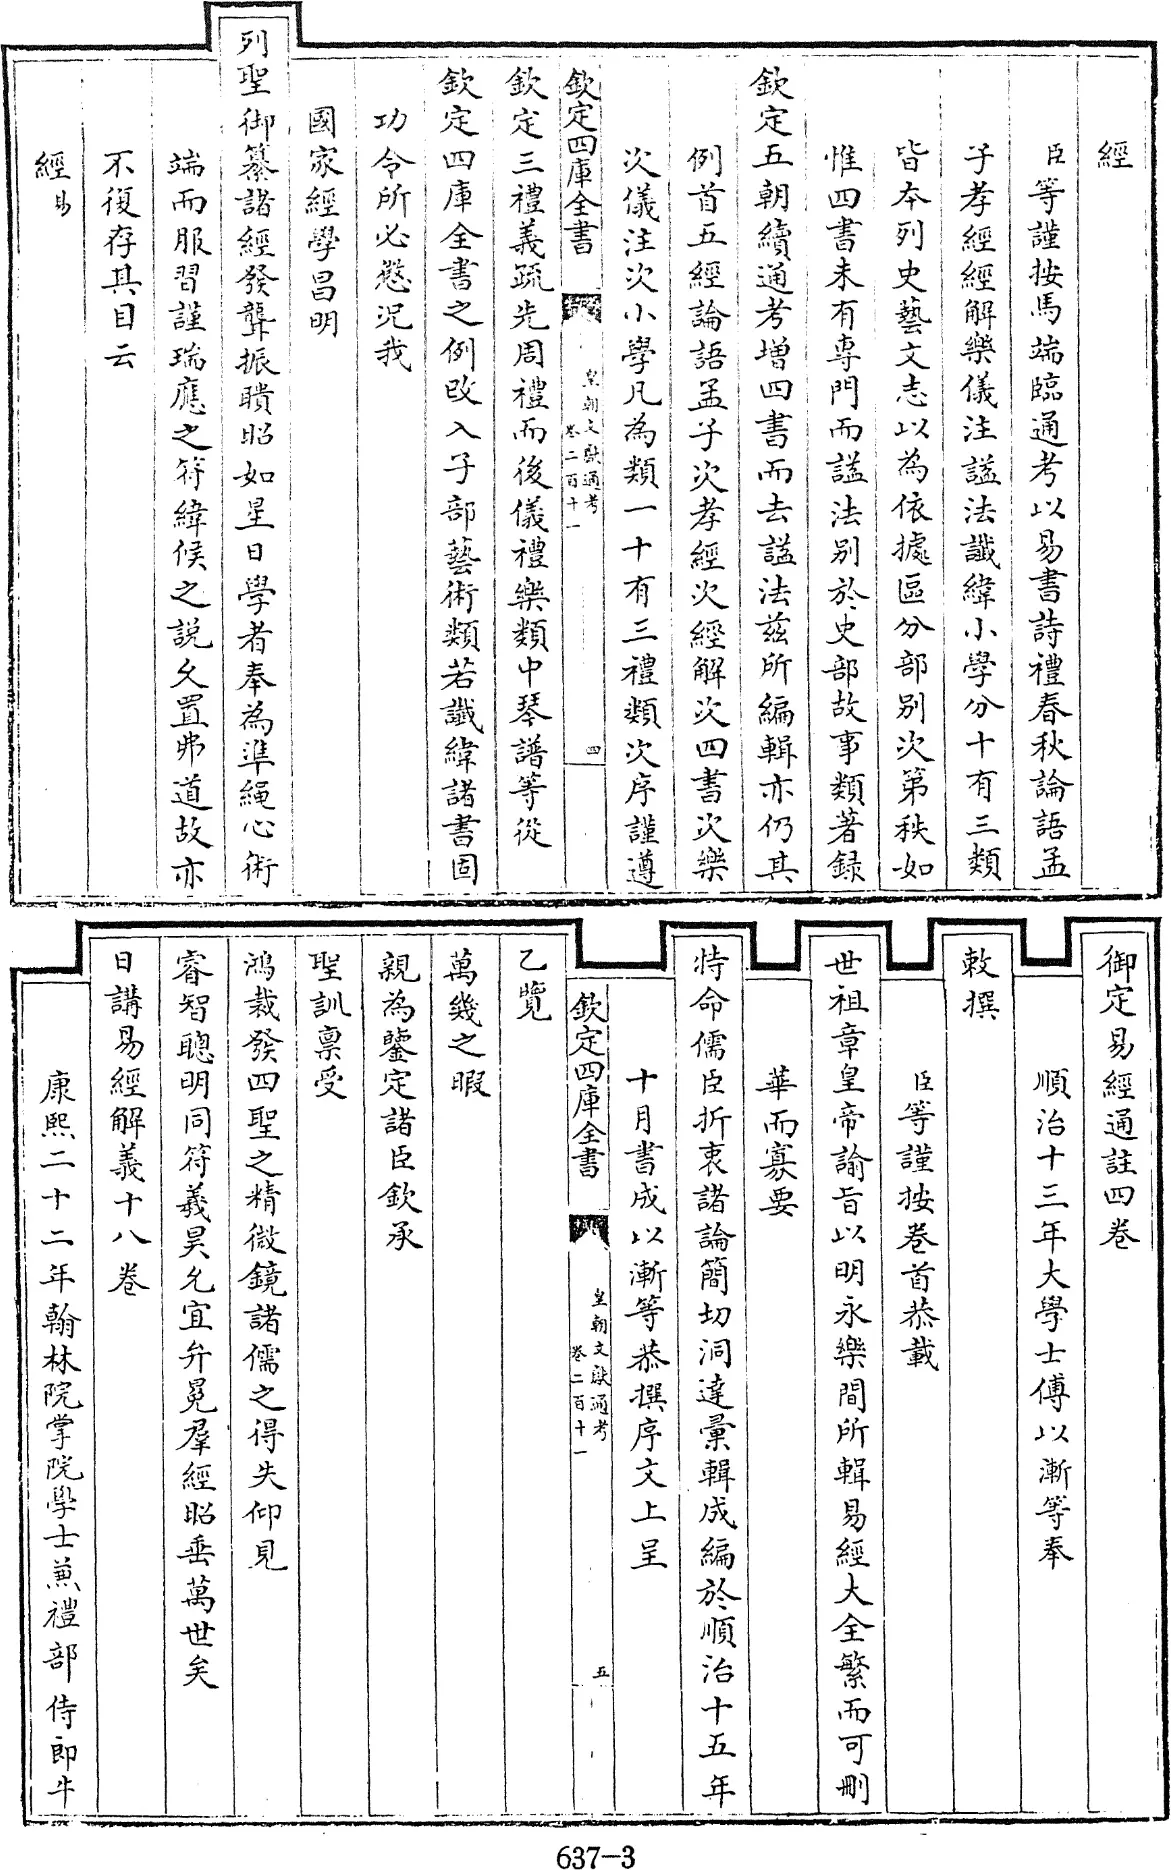 經
臣等謹按馬端臨通考以易書詩禮春秋論語孟
子孝經經解樂儀注諡法讖緯小學分十有三類
皆本列史藝文志以為依據區分部別次第秩如
惟四書未有専門而諡法別於史部故事類著錄
欽定五朝續通考增四書而去諡法茲所編輯亦仍其
例首五經論語孟子次孝經次經解次四書次樂
次儀注次小學凡為類一十有三禮類次序謹遵
欽定四庫全書
皇朝文獻通考
卷二百十一
四
欽定三禮義疏先周禮而後儀禮樂類中琴譜等從
欽定四庫全書之例改入子部藝術類若讖緯諸書固
功令所必懲況我
國家經學昌明
列聖御纂諸經發聾振聵昭如星日學者奉為準繩心術
端而服習謹瑞應之符緯候之說久置弗道故亦
不復存其目云
經易
御定易經通註四卷
順治十三年大學士傅以漸等奉
敕撰
臣等謹按卷首恭載
世祖章皇帝諭旨以明永樂間所輯易經大全繁而可刪
華而寡要
特命儒臣折衷諸論簡切洞達彙輯成編於順治十五年
十月書成以漸等恭撰序文上呈
欽定四庫全書
皇朝文獻通考
卷二百十一
五
乙覽
萬幾之暇
親為鑒定諸臣欽承
聖訓禀受
鴻裁發四聖之精微鏡諸儒之得失仰見
睿智聰明同符羲昊允宜弁冕羣經昭垂萬世矣
日講易經解義十八卷
康熙二十二年翰林院掌院學士兼禮部侍郎牛
637-3